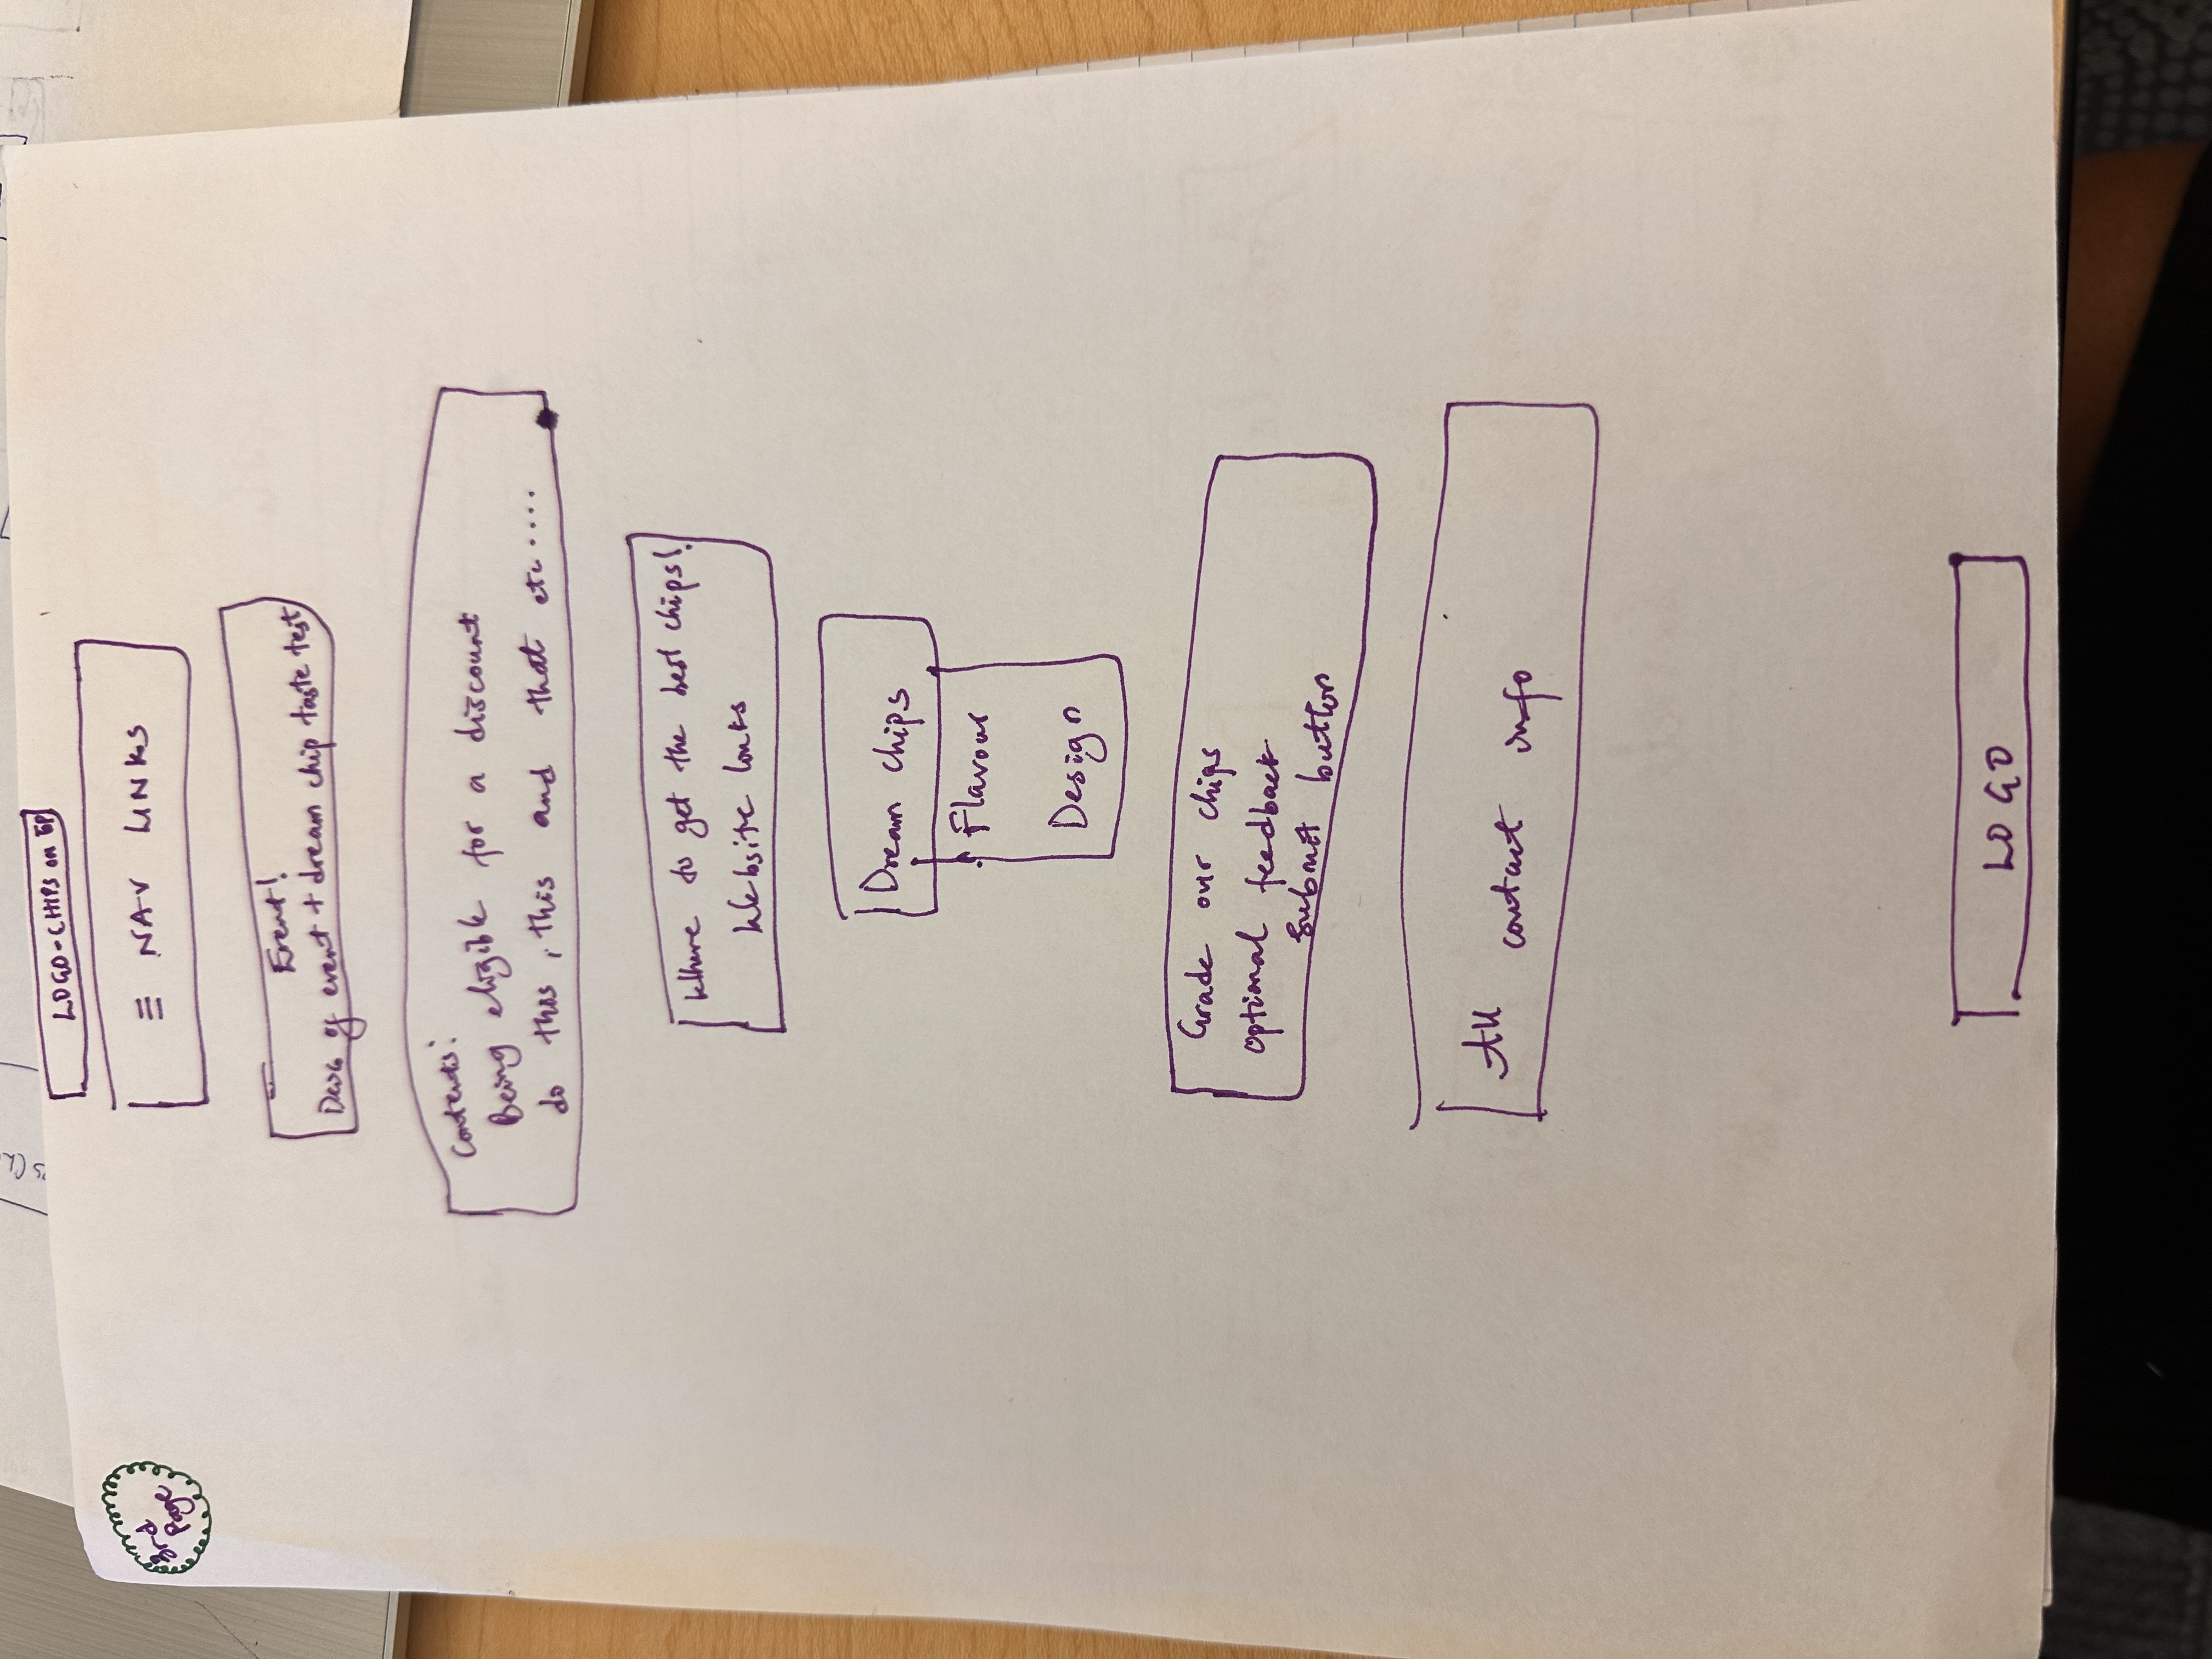 LOGO-CHIPS on
3rd
Page
≡ NAV LINKS
Event!
Desc of event + dream chip taste test
Contents:
Being eligible for a discount
do this, this and that etc.....
Where to get the best chips!
Website links
Dream chips
Flavour
Design
Grade our chips
optional feedback
Submit button
All contact info
LOGO